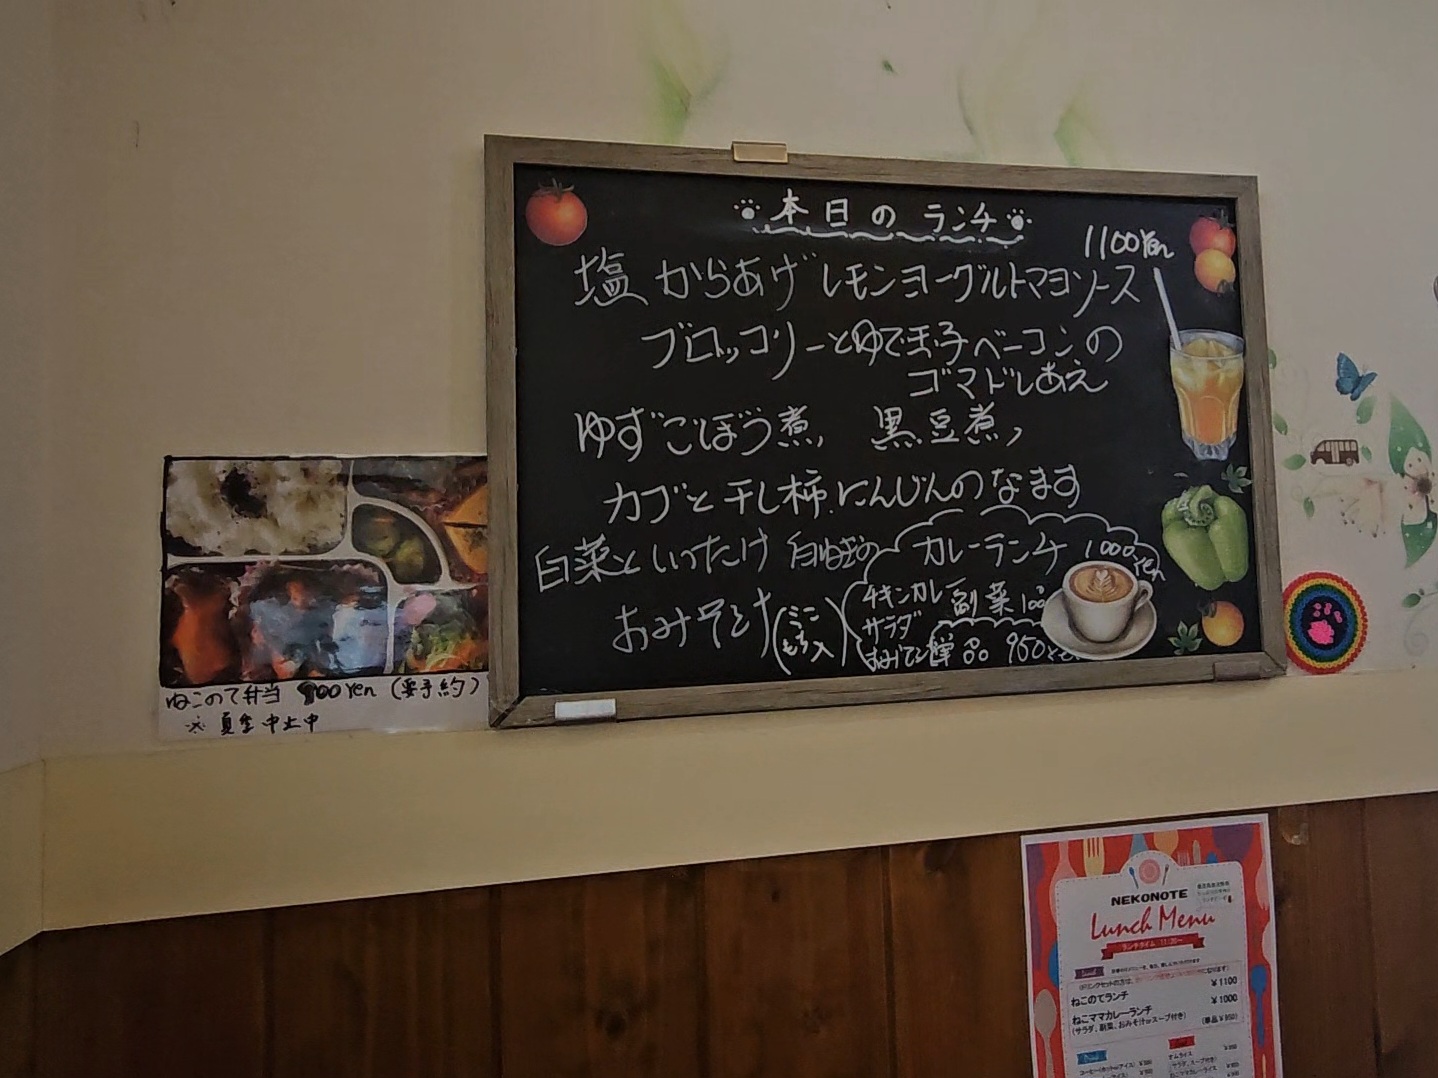 本日のランチ
1100Yen
塩からあげ レモンヨーグルトマヨソース
ブロッコリーとゆで玉子ベーコンの
ゴマドレあえ
ゆずごぼう煮, 黒豆煮,
カブと干し柿、にんじんのなます
白菜としいたけ 白ねぎの
おみそ汁
(ミニ
もち入)
カレーランチ 1000Yen
チキンカレー 副菜1品
サラダ
単品 950Yen
ねこのて弁当 900Yen (要予約)
※ 夏季中止中
NEKONOTE
Lunch Menu
ランチタイム 11:30〜
ねこのてランチ ¥1100
ねこママカレーランチ ¥1000
(サラダ、副菜、おみそ汁orスープ付き) (単品¥950)
オムライス